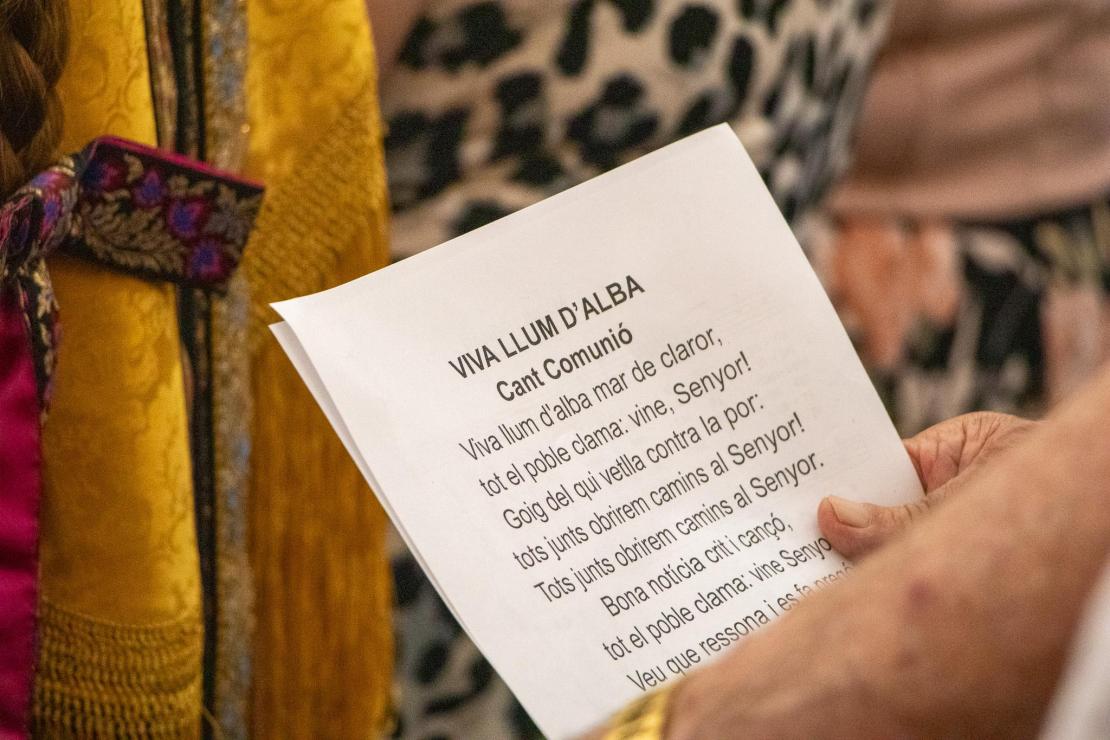 VIVA LLUM D'ALBA
Cant Comunió
Viva llum d'alba mar de claror,
tot el poble clama: vine, Senyor!
Goig del qui vetlla contra la por:
tots junts obrirem camins al Senyor!
Tots junts obrirem camins al Senyor.
Bona notícia crit i cançó,
tot el poble clama: vine Senyo
Veu que ressona i es fa pregó